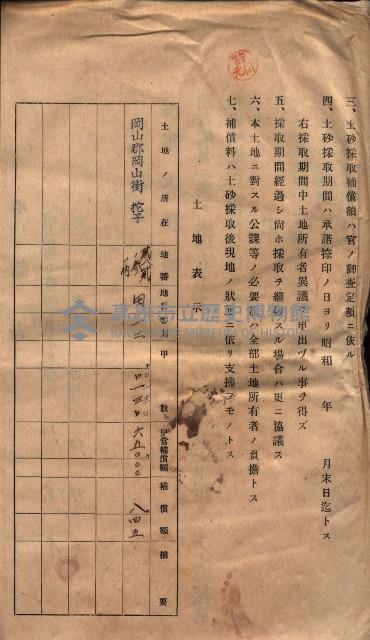 三、土砂採取補償額ハ官ノ御査定額ニ依ル
四、土砂採取期間ハ承諾捺印ノ日ヨリ昭和　年　月末日迄トス
右採取期間中土地所有者異議ノ申出ヅル事ヲ得ズ
五、採取期間經過シ尚ホ採取ヲ繼續スル場合ハ更ニ協議ス
六、本土地ニ對スル公課等ノ必要ハ全部土地所有者ノ負擔トス
七、補償料ハ土砂採取後現地ノ狀更ニ依リ支拂フモノトス
土地表示
土地ノ所在　地番　地目　等則　甲數　甲當補償額　補償額　摘要
岡山郡岡山街　田　六五〇〇〇　八四五
高雄市立歷史博物館
KAOHSIUNG MUSEUM OF HISTORY